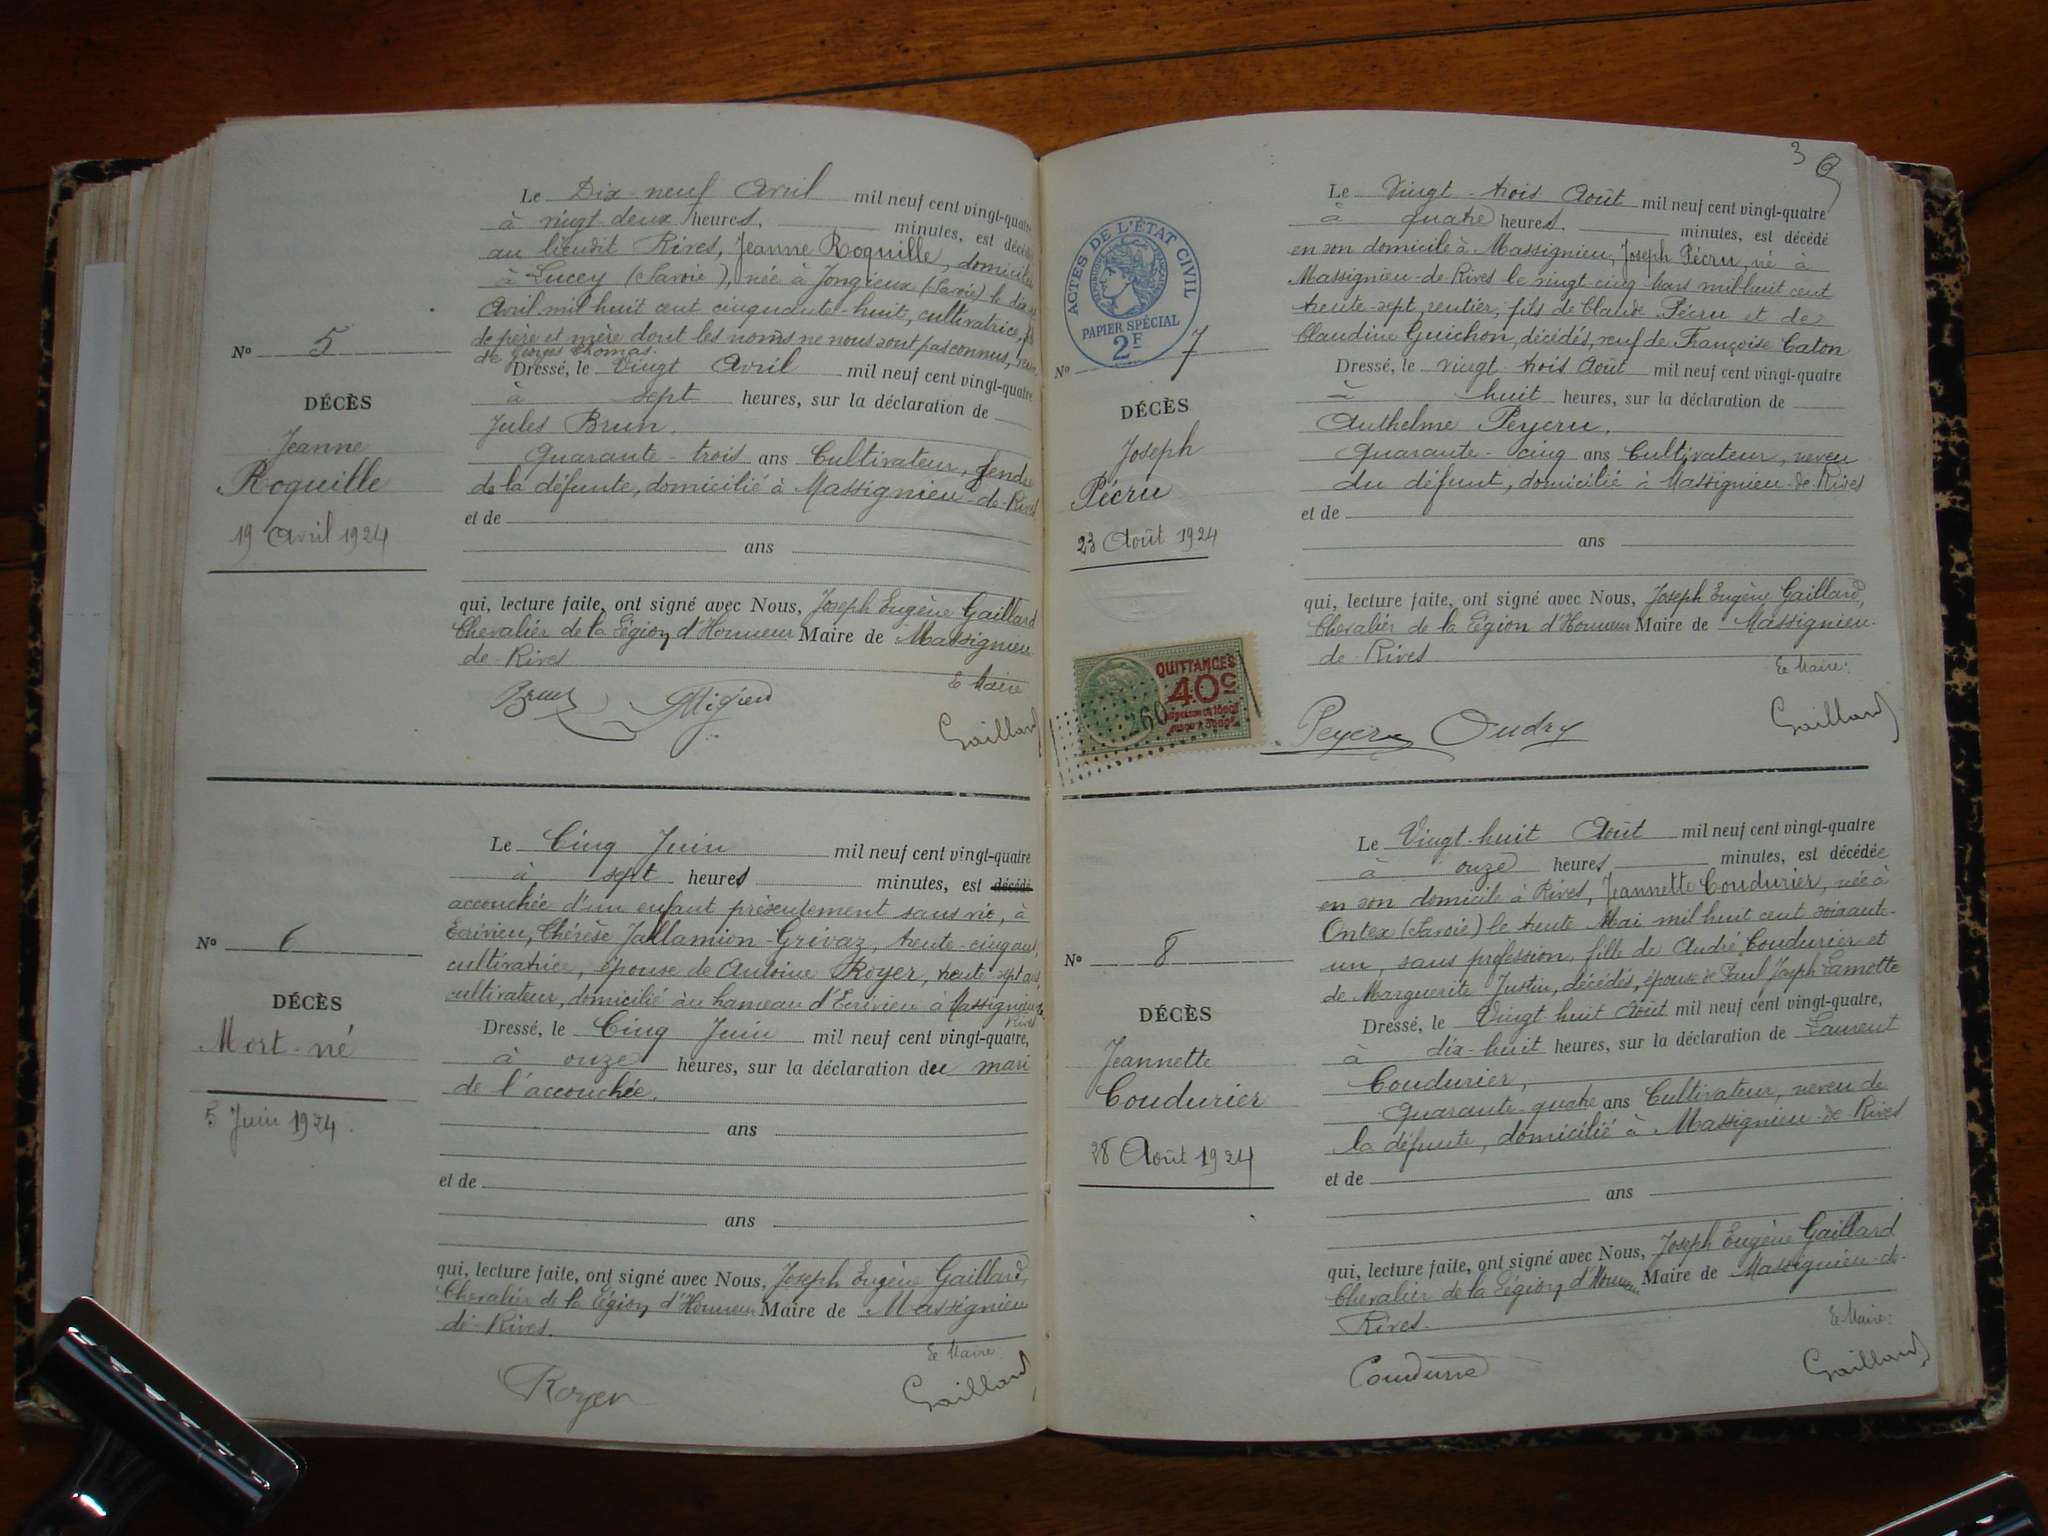 Le Dix-neuf Avril mil neuf cent vingt-quatre
à vingt deux heures, minutes, est décédée
au lieudit Rives, Jeanne Roquille, domiciliée
à Lucey (Savoie), née à Jongieux (Savoie) le
Avril mil huit cent cinquante-huit, cultivatrice,
de père et mère dont les noms ne nous sont pas connus,
de Georges Thomas.
Nº 5
DÉCÈS
Jeanne
Roquille
19 Avril 1924
Dressé, le Vingt Avril mil neuf cent vingt-quatre
à sept heures, sur la déclaration de
Jules Brun,
Quarante-trois ans Cultivateur, gendre
de la défunte, domicilié à Massignieu-de-Rives
et de
ans
qui, lecture faite, ont signé avec Nous, Joseph Eugène Gaillard
Chevalier de la Légion d'Honneur Maire de Massignieu
de-Rives
Le Maire
Brun Gaillard
Le Cinq Juin mil neuf cent vingt-quatre
à sept heures minutes, est décédé
accouchée d'un enfant présentement sans vie, à
Ecrivieu, Thérèse Jallamion-Grivaz, trente-cinq ans,
cultivatrice, épouse de Antoine Royer, trente sept ans,
cultivateur, domicilié au hameau d'Ecrivieu à Massignieu de
Rives
Nº 6
DÉCÈS
Mort-né
5 Juin 1924.
Dressé, le Cinq Juin mil neuf cent vingt-quatre,
à onze heures, sur la déclaration du mari
de l'accouchée.
ans
et de
ans
qui, lecture faite, ont signé avec Nous, Joseph Eugène Gaillard,
Chevalier de la Légion d'Honneur Maire de Massignieu
de-Rives.
Le Maire
Royer Gaillard
3
ACTES DE L'ÉTAT CIVIL
RÉPUBLIQUE FRANÇAISE
PAPIER SPÉCIAL
2F
Le Vingt-trois Août mil neuf cent vingt-quatre
à quatre heures, minutes, est décédé
en son domicile à Massignieu, Joseph Pécru, né à
Massignieu-de-Rives le vingt cinq Mars mil huit cent
trente-sept, rentier, fils de Claude Pécru et de
Claudine Guichon, décédés, veuf de Françoise Caton
Nº 7
DÉCÈS
Joseph
Pécru
23 Août 1924
Dressé, le vingt-trois Août mil neuf cent vingt-quatre
à huit heures, sur la déclaration de
Anthelme Peyeru,
Quarante-cinq ans Cultivateur, neveu
du défunt, domicilié à Massignieu-de-Rives
et de
ans
qui, lecture faite, ont signé avec Nous, Joseph Eugène Gaillard,
Chevalier de la Légion d'Honneur Maire de Massignieu-
de-Rives
Le Maire:
QUITTANCES
40c
260
Oudry Gaillard
Le Vingt-huit Août mil neuf cent vingt-quatre
à onze heures minutes, est décédée
en son domicile à Rives, Jeannette Coudurier, née à
Ontex (Savoie) le trente Mai mil huit cent soixante-
un, sans profession, fille de André Coudurier et
de Marguerite Justin, décédés, épouse de Paul Joseph Lamotte
Nº 8
DÉCÈS
Jeannette
Coudurier
28 Août 1924
Dressé, le Vingt-huit Août mil neuf cent vingt-quatre,
à dix-huit heures, sur la déclaration de Laurent
Coudurier,
Quarante-quatre ans Cultivateur, neveu de
la défunte, domicilié à Massignieu-de-Rives
et de
ans
qui, lecture faite, ont signé avec Nous, Joseph Eugène Gaillard
Chevalier de la Légion d'Honneur Maire de Massignieu-de-
Rives.
Le Maire:
Gaillard